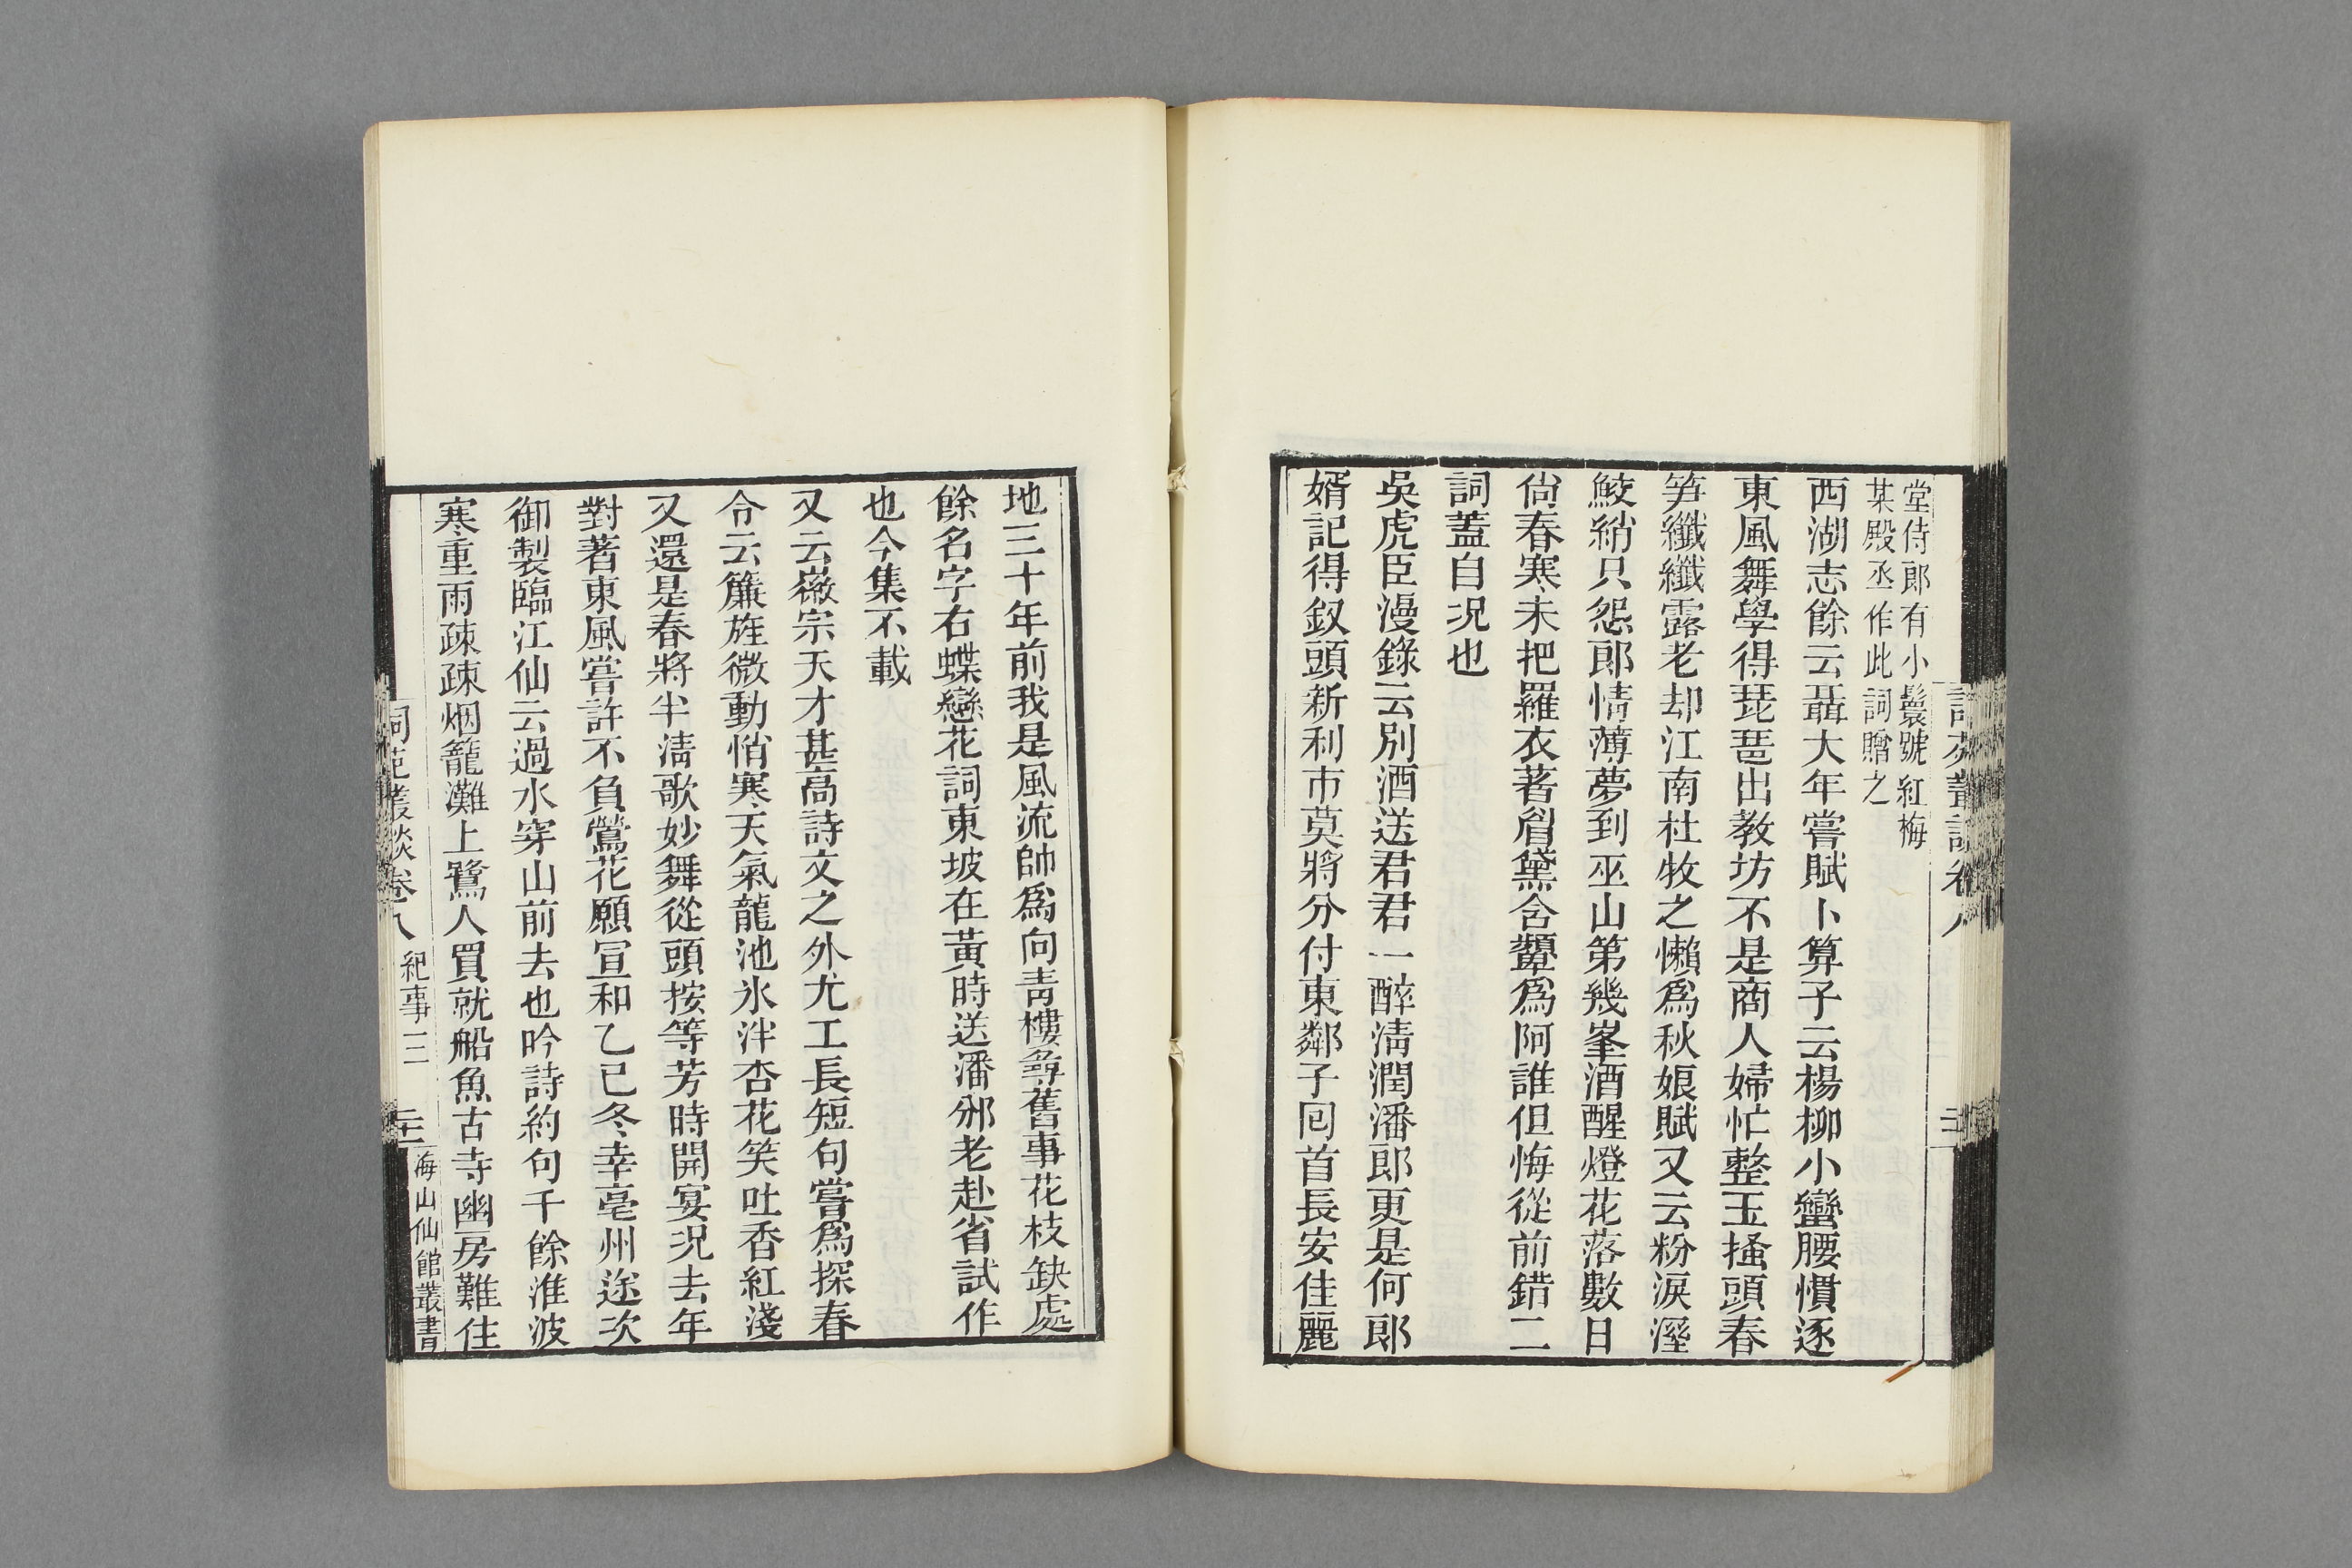 堂侍郎有小鬟號紅梅
某殿丞作此詞贈之
西湖志餘云聶大年嘗賦卜算子云楊柳小蠻腰慣逐
東風舞學得琵琶出教坊不是商人婦忙整玉搔頭春
笋纖纖露老却江南杜牧之懶爲秋娘賦又云粉淚溼
鮫綃只怨郎情薄夢到巫山第幾峯酒醒燈花落數日
尙春寒未把羅衣著眉黛含顰爲阿誰但悔從前錯二
詞蓋自况也
吳虎臣漫錄云別酒送君君一醉淸潤潘郎更是何郎
婿記得釵頭新利市莫將分付東鄰子囘首長安佳麗
地三十年前我是風流帥爲向靑樓尋舊事花枝缺處
餘名字右蝶戀花詞東坡在黃時送潘邠老赴省試作
也今集不載
又云徽宗天才甚高詩文之外尤工長短句嘗爲探春
令云簾旌微動悄寒天氣龍池氷泮杏花笑吐香紅淺
又還是春將半淸歌妙舞從頭按等芳時開宴况去年
對著東風嘗許不負鶯花願宣和乙巳冬幸亳州途次
御製臨江仙云過水穿山前去也吟詩約句千餘淮波
寒重雨疎疎烟籠灘上鷺人買就船魚古寺幽房難住
詞苑叢談卷八 紀事三
海山仙館叢書